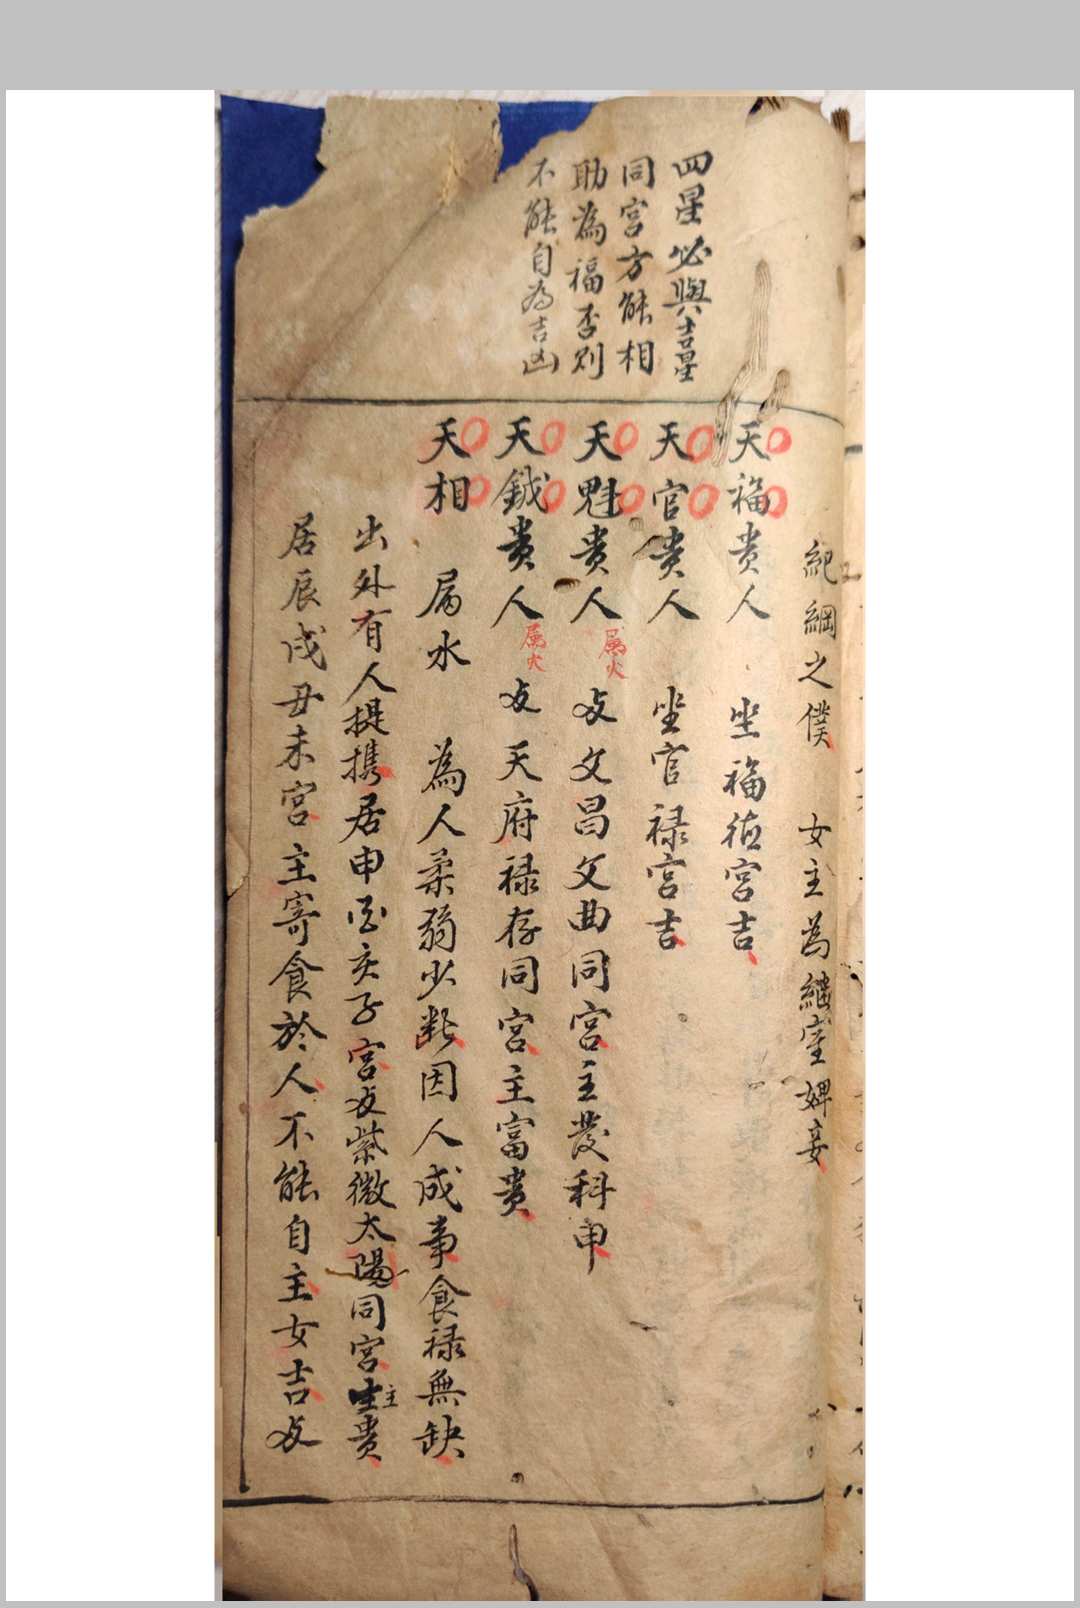 四星必與吉星
同宮方能相
助為福否則
不能自為吉凶
紀綱之僕　女主為繼室婢妾
天福貴人　坐福德宮吉
天官貴人　坐官祿宮吉
天魁貴人　屬火　与文昌文曲同宮主發科甲
天鉞貴人　屬火　与天府祿存同宮主富貴
天相　屬水　為人柔弱少斷因人成事食祿無缺
出外有人提携居申酉亥子宮与紫微太陽同宮主貴
居辰戌丑未宮主寄食於人不能自主女吉与